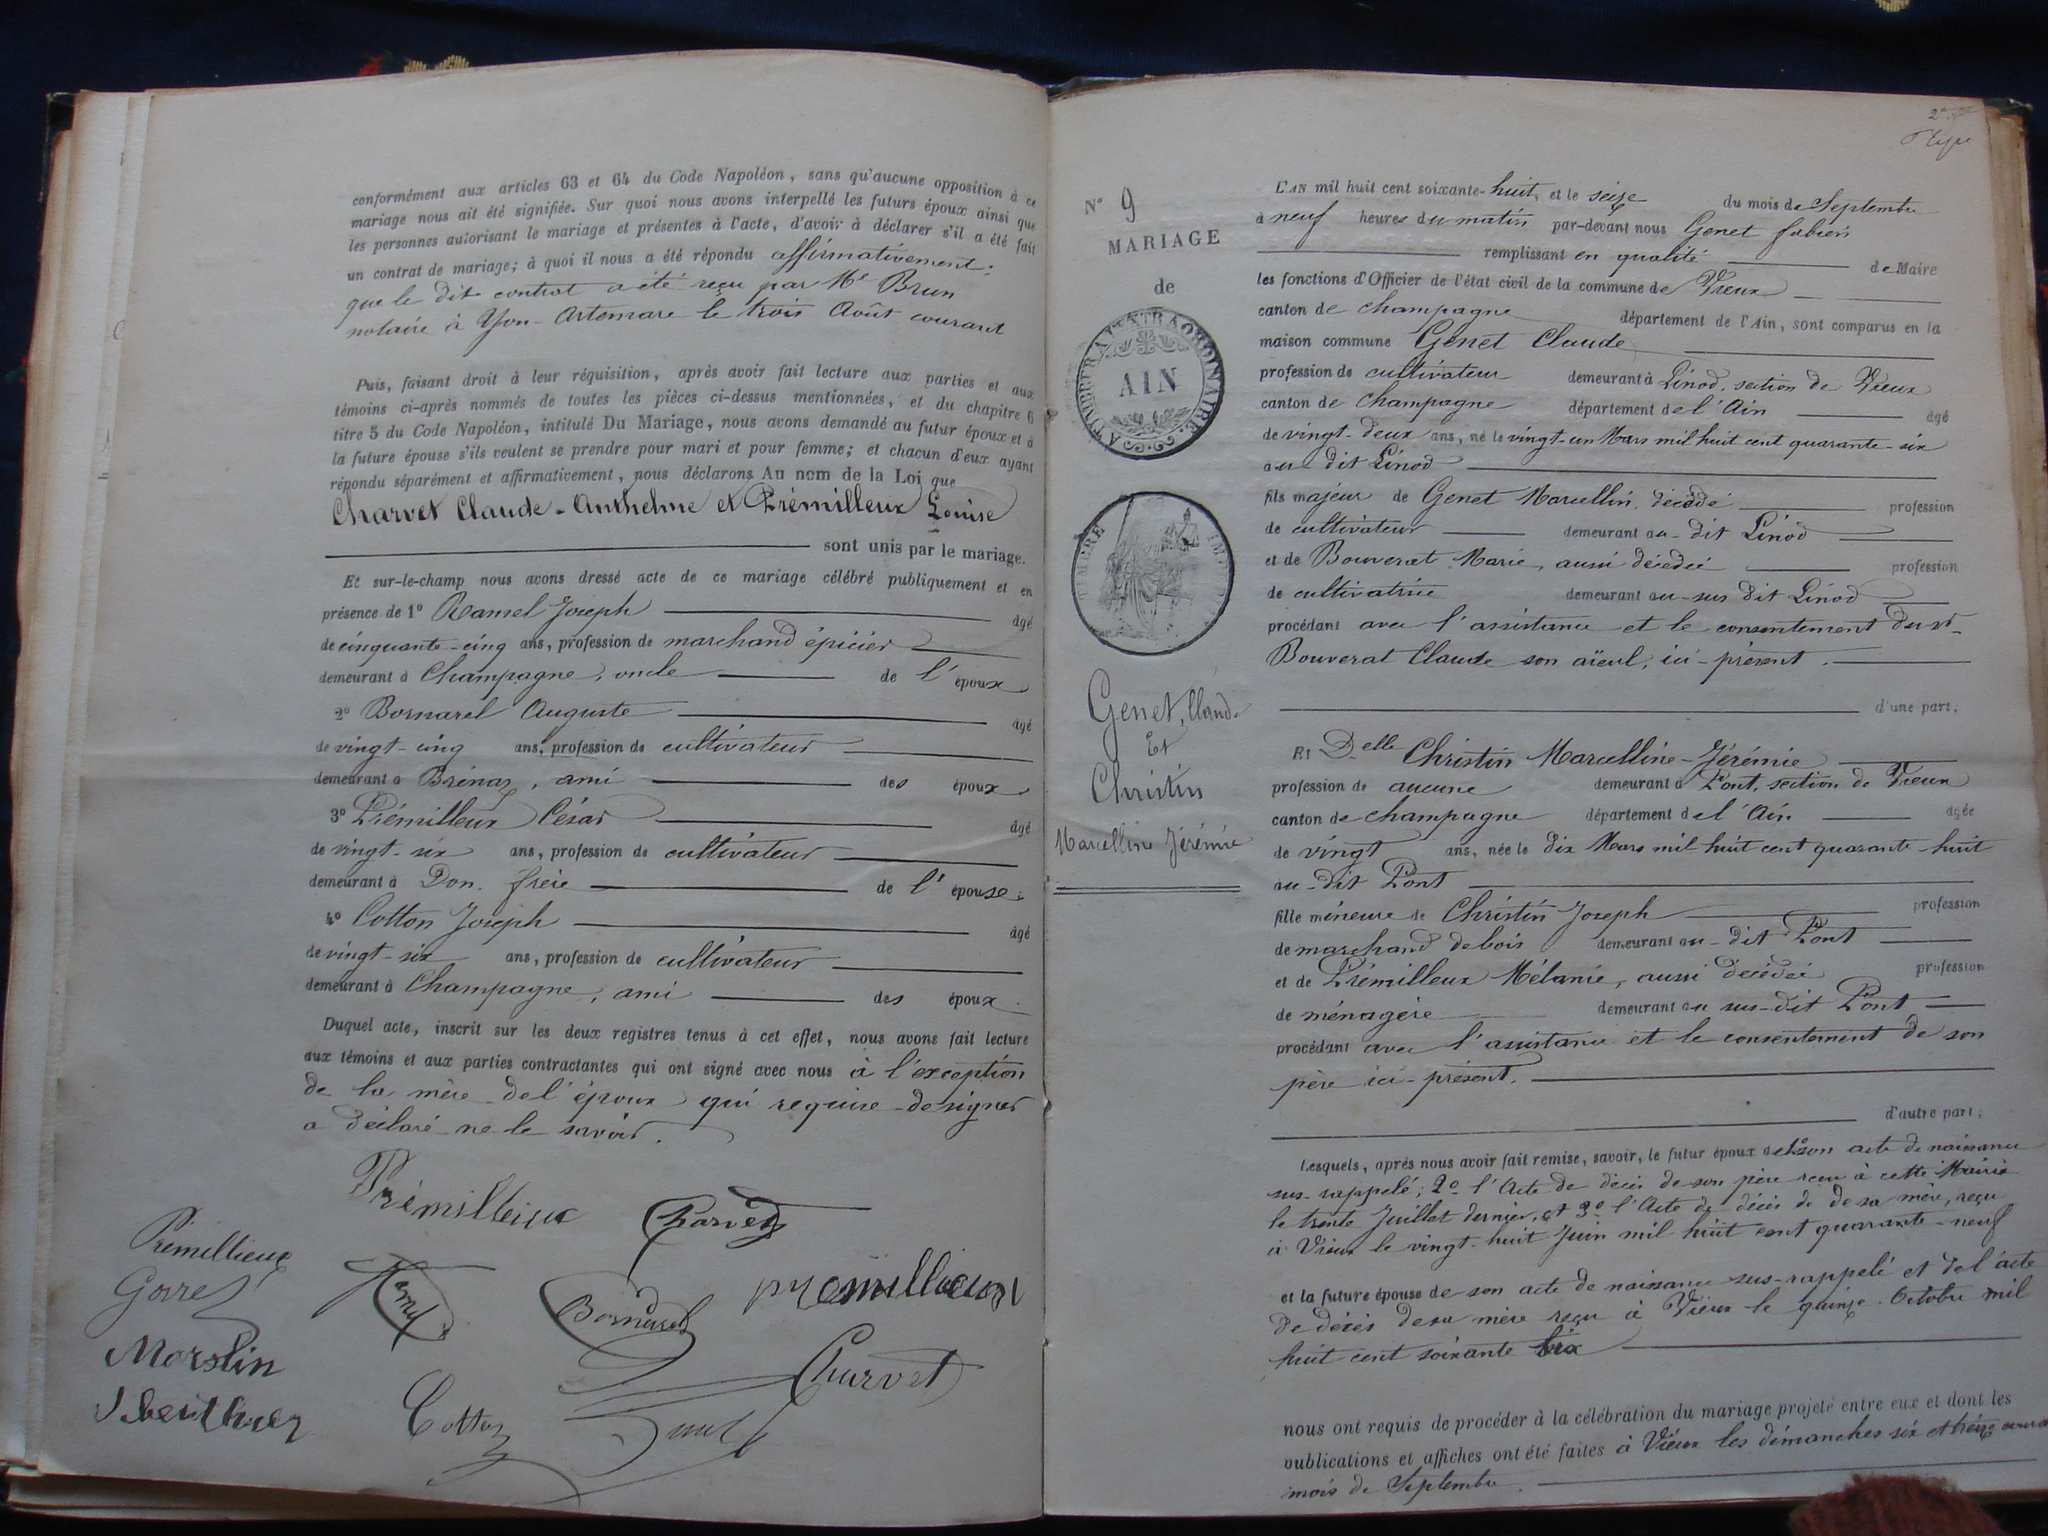 conformément aux articles 63 et 64 du Code Napoléon, sans qu'aucune opposition à ce
mariage nous ait été signifiée. Sur quoi nous avons interpellé les futurs époux ainsi que
les personnes autorisant le mariage et présentes à l'acte, d'avoir à déclarer s'il a été fait
un contrat de mariage; à quoi il nous a été répondu affirmativement:
que le dit contrat a été reçu par Me Brun
notaire à Yon-Artemare le trois Août courant
Puis, faisant droit à leur réquisition, après avoir fait lecture aux parties et aux
témoins ci-après nommés de toutes les pièces ci-dessus mentionnées, et du chapitre 6
titre 5 du Code Napoléon, intitulé Du Mariage, nous avons demandé au futur époux et à
la future épouse s'ils veulent se prendre pour mari et pour femme; et chacun d'eux ayant
répondu séparément et affirmativement, nous déclarons Au nom de la Loi que
Charvet Claude-Anthelme et Prémilleux Louise
sont unis par le mariage.
Et sur-le-champ nous avons dressé acte de ce mariage célébré publiquement et en
présence de 1° Ramel Joseph âgé
de cinquante-cinq ans, profession de marchand épicier
demeurant à Champagne, oncle de l'époux
2° Bornarel Auguste âgé
de vingt-cinq ans, profession de cultivateur
demeurant à Brénaz, ami des époux
3° Prémilleux César âgé
de vingt-six ans, profession de cultivateur
demeurant à Don. frère de l'épouse;
4° Cotton Joseph âgé
de vingt-six ans, profession de cultivateur
demeurant à Champagne, ami des époux.
Duquel acte, inscrit sur les deux registres tenus à cet effet, nous avons fait lecture
aux témoins et aux parties contractantes qui ont signé avec nous à l'exception
de la mère de l'époux qui requise de signer
a déclaré ne le savoir.
Prémillieux Charvet
Prémillieux
Gorrel
Bornarel premillieux
Morslin
Charvet
Cotton
N° 9
MARIAGE
de
AIN
TIMBRE IM
Genet, Claude
Et
Christin
Marcelline Jérémie
L'AN mil huit cent soixante-huit, et le seize du mois de Septembre
à neuf heures du matin par-devant nous Genet fabien
remplissant en qualité de Maire
les fonctions d'Officier de l'état civil de la commune de Vieux
canton de champagne département de l'Ain, sont comparus en la
maison commune Genet Claude
profession de cultivateur demeurant à Linod, section de Vieux
canton de champagne département de l'Ain âgé
de vingt-deux ans, né le vingt-un Mars mil huit cent quarante-six
au dit Linod
fils majeur de Genet Marcellin, décédé profession
de cultivateur demeurant au-dit Linod
et de Bouverat Marie, aussi décédée profession
de cultivatrice demeurant au-sus dit Linod
procédant avec l'assistance et le consentement du sr
Bouverat Claude son aïeul, ici-présent.
d'une part,
Et Delle Christin Marcelline-Jérémie
profession de aucune demeurant à Pont, section de Vieux
canton de champagne département de l'Ain âgée
de vingt ans, née le dix Mars mil huit cent quarante-huit
au-dit Pont
fille mineure de Christin Joseph profession
de marchand de bois demeurant au-dit Pont
et de Prémilleux Mélanie, aussi décédée profession
de ménagère demeurant au sus-dit Pont
procédant avec l'assistance et le consentement de son
père ici-présent.
d'autre part;
Lesquels, après nous avoir fait remise, savoir, le futur époux de 1° son acte de naissance
sus-rappelé; 2° l'Acte de décès de son père reçu à cette Mairie
le trente Juillet dernier, et 3° l'Acte de décès de de sa mère, reçu
à Vieux le vingt-huit Juin mil huit cent quarante-neuf
et la future épouse de son acte de naissance sus-rappelé et de l'acte
de décès de sa mère reçu à Vieux le quinze Octobre mil
huit cent soixante
nous ont requis de procéder à la célébration du mariage projeté entre eux et dont les
publications et affiches ont été faites à Vieux les dimanches six et treize courant
mois de Septembre.